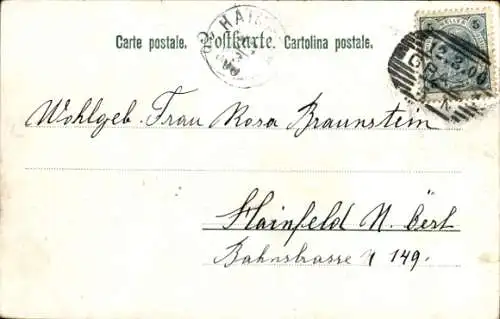 Carte postale. Postkarte. Cartolina postale.
HAI
5
12.3.00
GRAZ
Wohlgeb. Frau Rosa Braunstein
Hainfeld N. Öest
Bahnstrasse N 149.